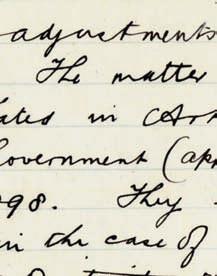 adjustments
The matter
ates in Art
Government (app
98. They
in the case of